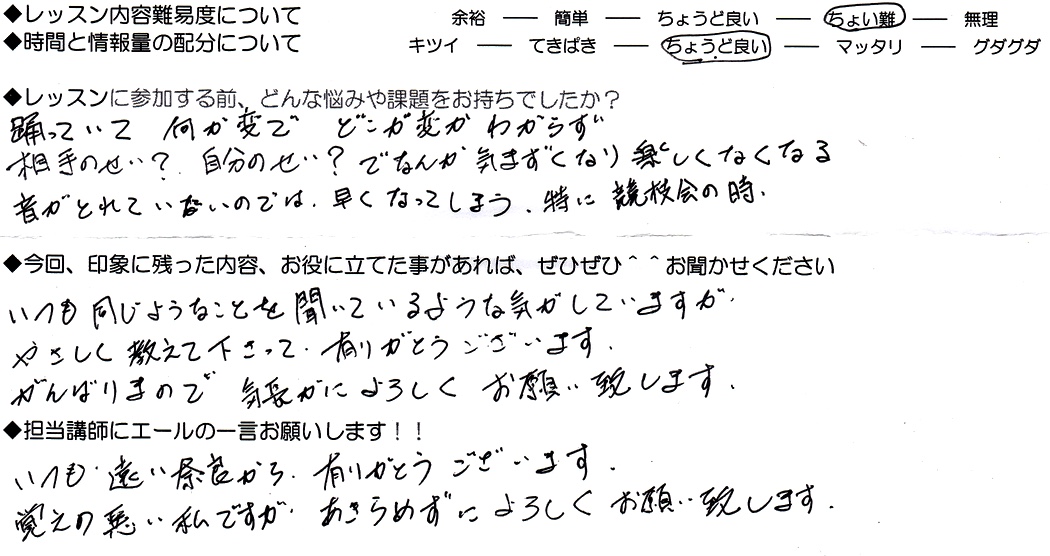 ◆レッスン内容難易度について　余裕 ― 簡単 ― ちょうど良い ― ちょい難 ― 無理
◆時間と情報量の配分について　キツイ ― てきぱき ― ちょうど良い ― マッタリ ― グダグダ
◆レッスンに参加する前、どんな悩みや課題をお持ちでしたか？
踊っていて 何か変で どこが変か わからず
相手のせい? 自分のせい? でなんか 気まずくなり 楽しくなくなる
音がとれていないのでは、早くなってしまう、特に 競技会の時.
◆今回、印象に残った内容、お役に立てた事があれば、ぜひぜひ＾＾お聞かせください
いつも 同じようなことを 聞いているような気がしていますが、
やさしく 教えて下さって、有りがとうございます.
がんばりまので 気長がに よろしく お願い致します.
◆担当講師にエールの一言お願いします！！
いつも 遠い 奈良から、有りがとう ございます.
覚えの 悪い 私ですが、あきらめずに よろしく お願い 致します.